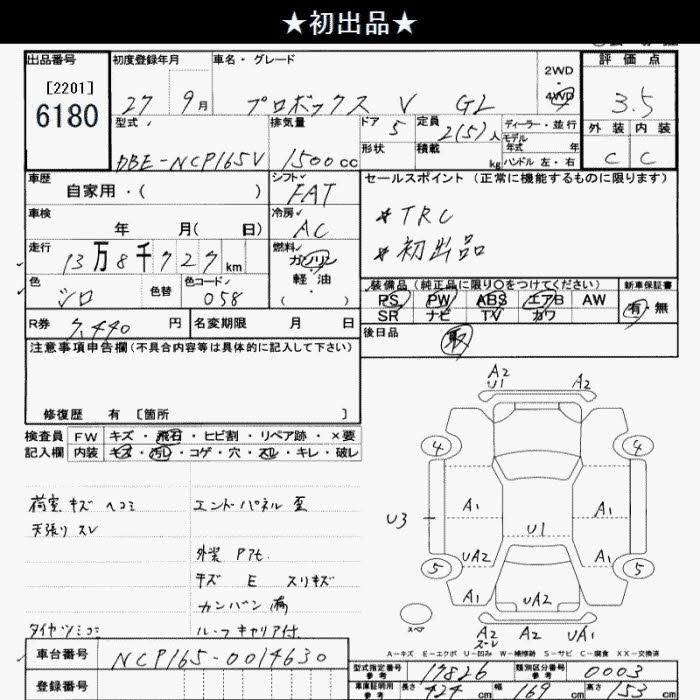 ★初出品★
出品番号
[2201]
6180
初度登録年月
27 9月
車名・グレード
プロボックス V GL
2WD
・
4WD
評価点
3.5
外装 内装
C C
型式
DBE-NCP165V
排気量
1500cc
ドア 5
定員 2(5)人
ディーラー・並行
モデル
年式 年
形状
積載 kg
ハンドル 左・右
車歴
自家用・( )
シフト
FAT
セールスポイント(正常に機能するものに限ります)
*TRC
*初出品
車検
年 月( 日)
冷房
AC
走行
13万8千727km
燃料
ガソリン
・
軽・油
( )
色
シロ
色替
色コード
058
装備品(純正品に限り○をつけてください)
PS PW ABS エアB AW
SR ナビ TV カワ
新車保証書
有・無
R券
7,440円
名変期限 月 日
後日品
取
注意事項申告欄(不具合内容等は具体的に記入して下さい)
修復歴 有 [箇所 ]
検査員
記入欄
FW キズ・飛石・ヒビ割・リペア跡・×要
内装 キズ・汚レ・コゲ・穴・スレ・キレ・破レ
荷室キズ ヘコミ
天張り スレ
エンドパネル 歪
外装 Pアモ
キズ E スリキズ
カンバン 有
タイヤツミコミ
ルーフキャリア付
A2
U1
A2
4
4
A1
A1
U3
U1
UA2
A1
5
5
A1
UA2
A1
スペア
A2
スレ
A2
UA1
A−キズ E−エクボ U−凹み W−補修跡 S−サビ C−腐食 XX−交換済
車台番号
NCP165-0014630
登録番号
型式指定番号
参考
17826
類別区分番号
参考
0003
車庫証明用
参考
長さ 424cm
幅 169cm
高さ 153cm